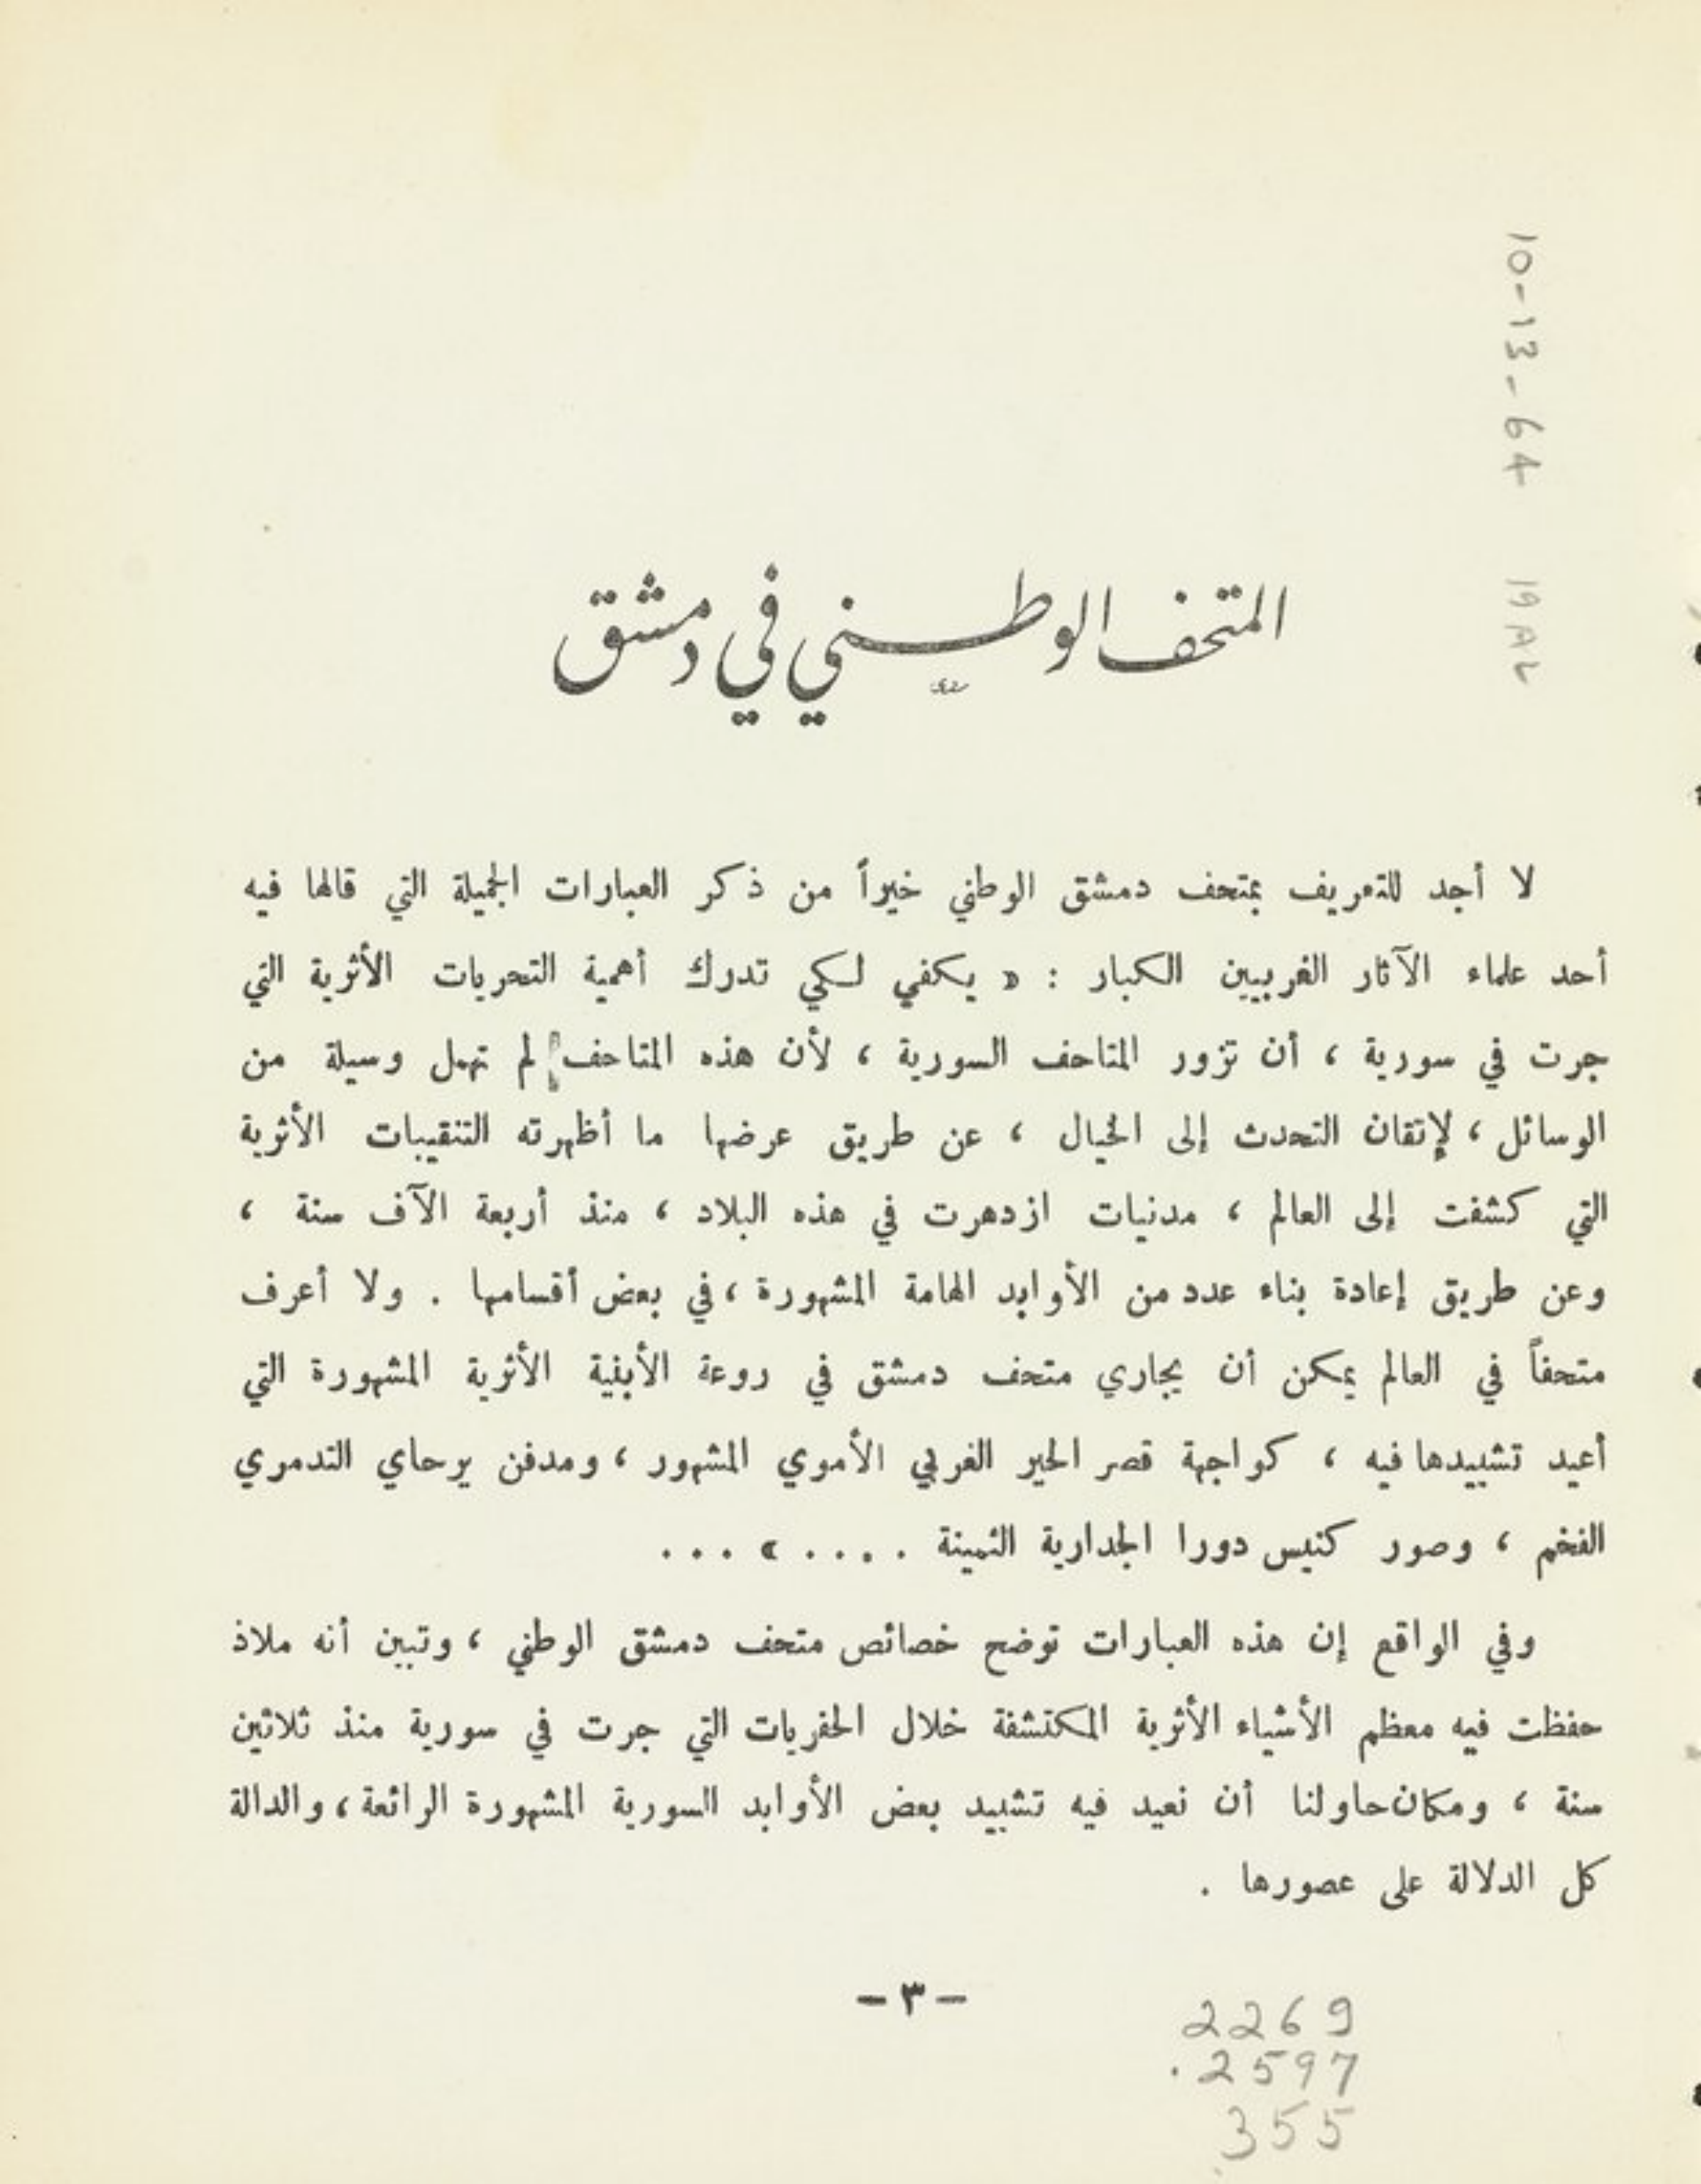 10-13-64
المتحف الوطني في دمشق
لا أجد للتعريف بمتحف دمشق الوطني خيراً من ذكر العبارات الجميلة التي قالها فيه
أحد علماء الآثار الغربيين الكبار : « يكفي لكي تدرك أهمية التحريات الأثرية التي
جرت في سورية ، أن تزور المتاحف السورية ، لأن هذه المتاحف لم تهمل وسيلة من
الوسائل ، لإتقان التحدث إلى الخيال ، عن طريق عرضها ما أظهرته التنقيبات الأثرية
التي كشفت إلى العالم ، مدنيات ازدهرت في هذه البلاد ، منذ أربعة الآف سنة ،
وعن طريق إعادة بناء عدد من الأوابد الهامة المشهورة ، في بعض أقسامها . ولا أعرف
متحفاً في العالم يمكن أن يجاري متحف دمشق في روعة الأبنية الأثرية المشهورة التي
أعيد تشييدها فيه ، كواجهة قصر الحير الغربي الأموي المشهور ، ومدفن يرحاي التدمري
الفخم ، وصور كنيس دورا الجدارية الثمينة . . . . » . . .
وفي الواقع إن هذه العبارات توضح خصائص متحف دمشق الوطني ، وتبين أنه ملاذ
حفظت فيه معظم الأشياء الأثرية المكتشفة خلال الحفريات التي جرت في سورية منذ ثلاثين
سنة ، ومكان حاولنا أن نعيد فيه تشييد بعض الأوابد السورية المشهورة الرائعة ، والدالة
كل الدلالة على عصورها .
- ٣ -
2269
.2597
.355